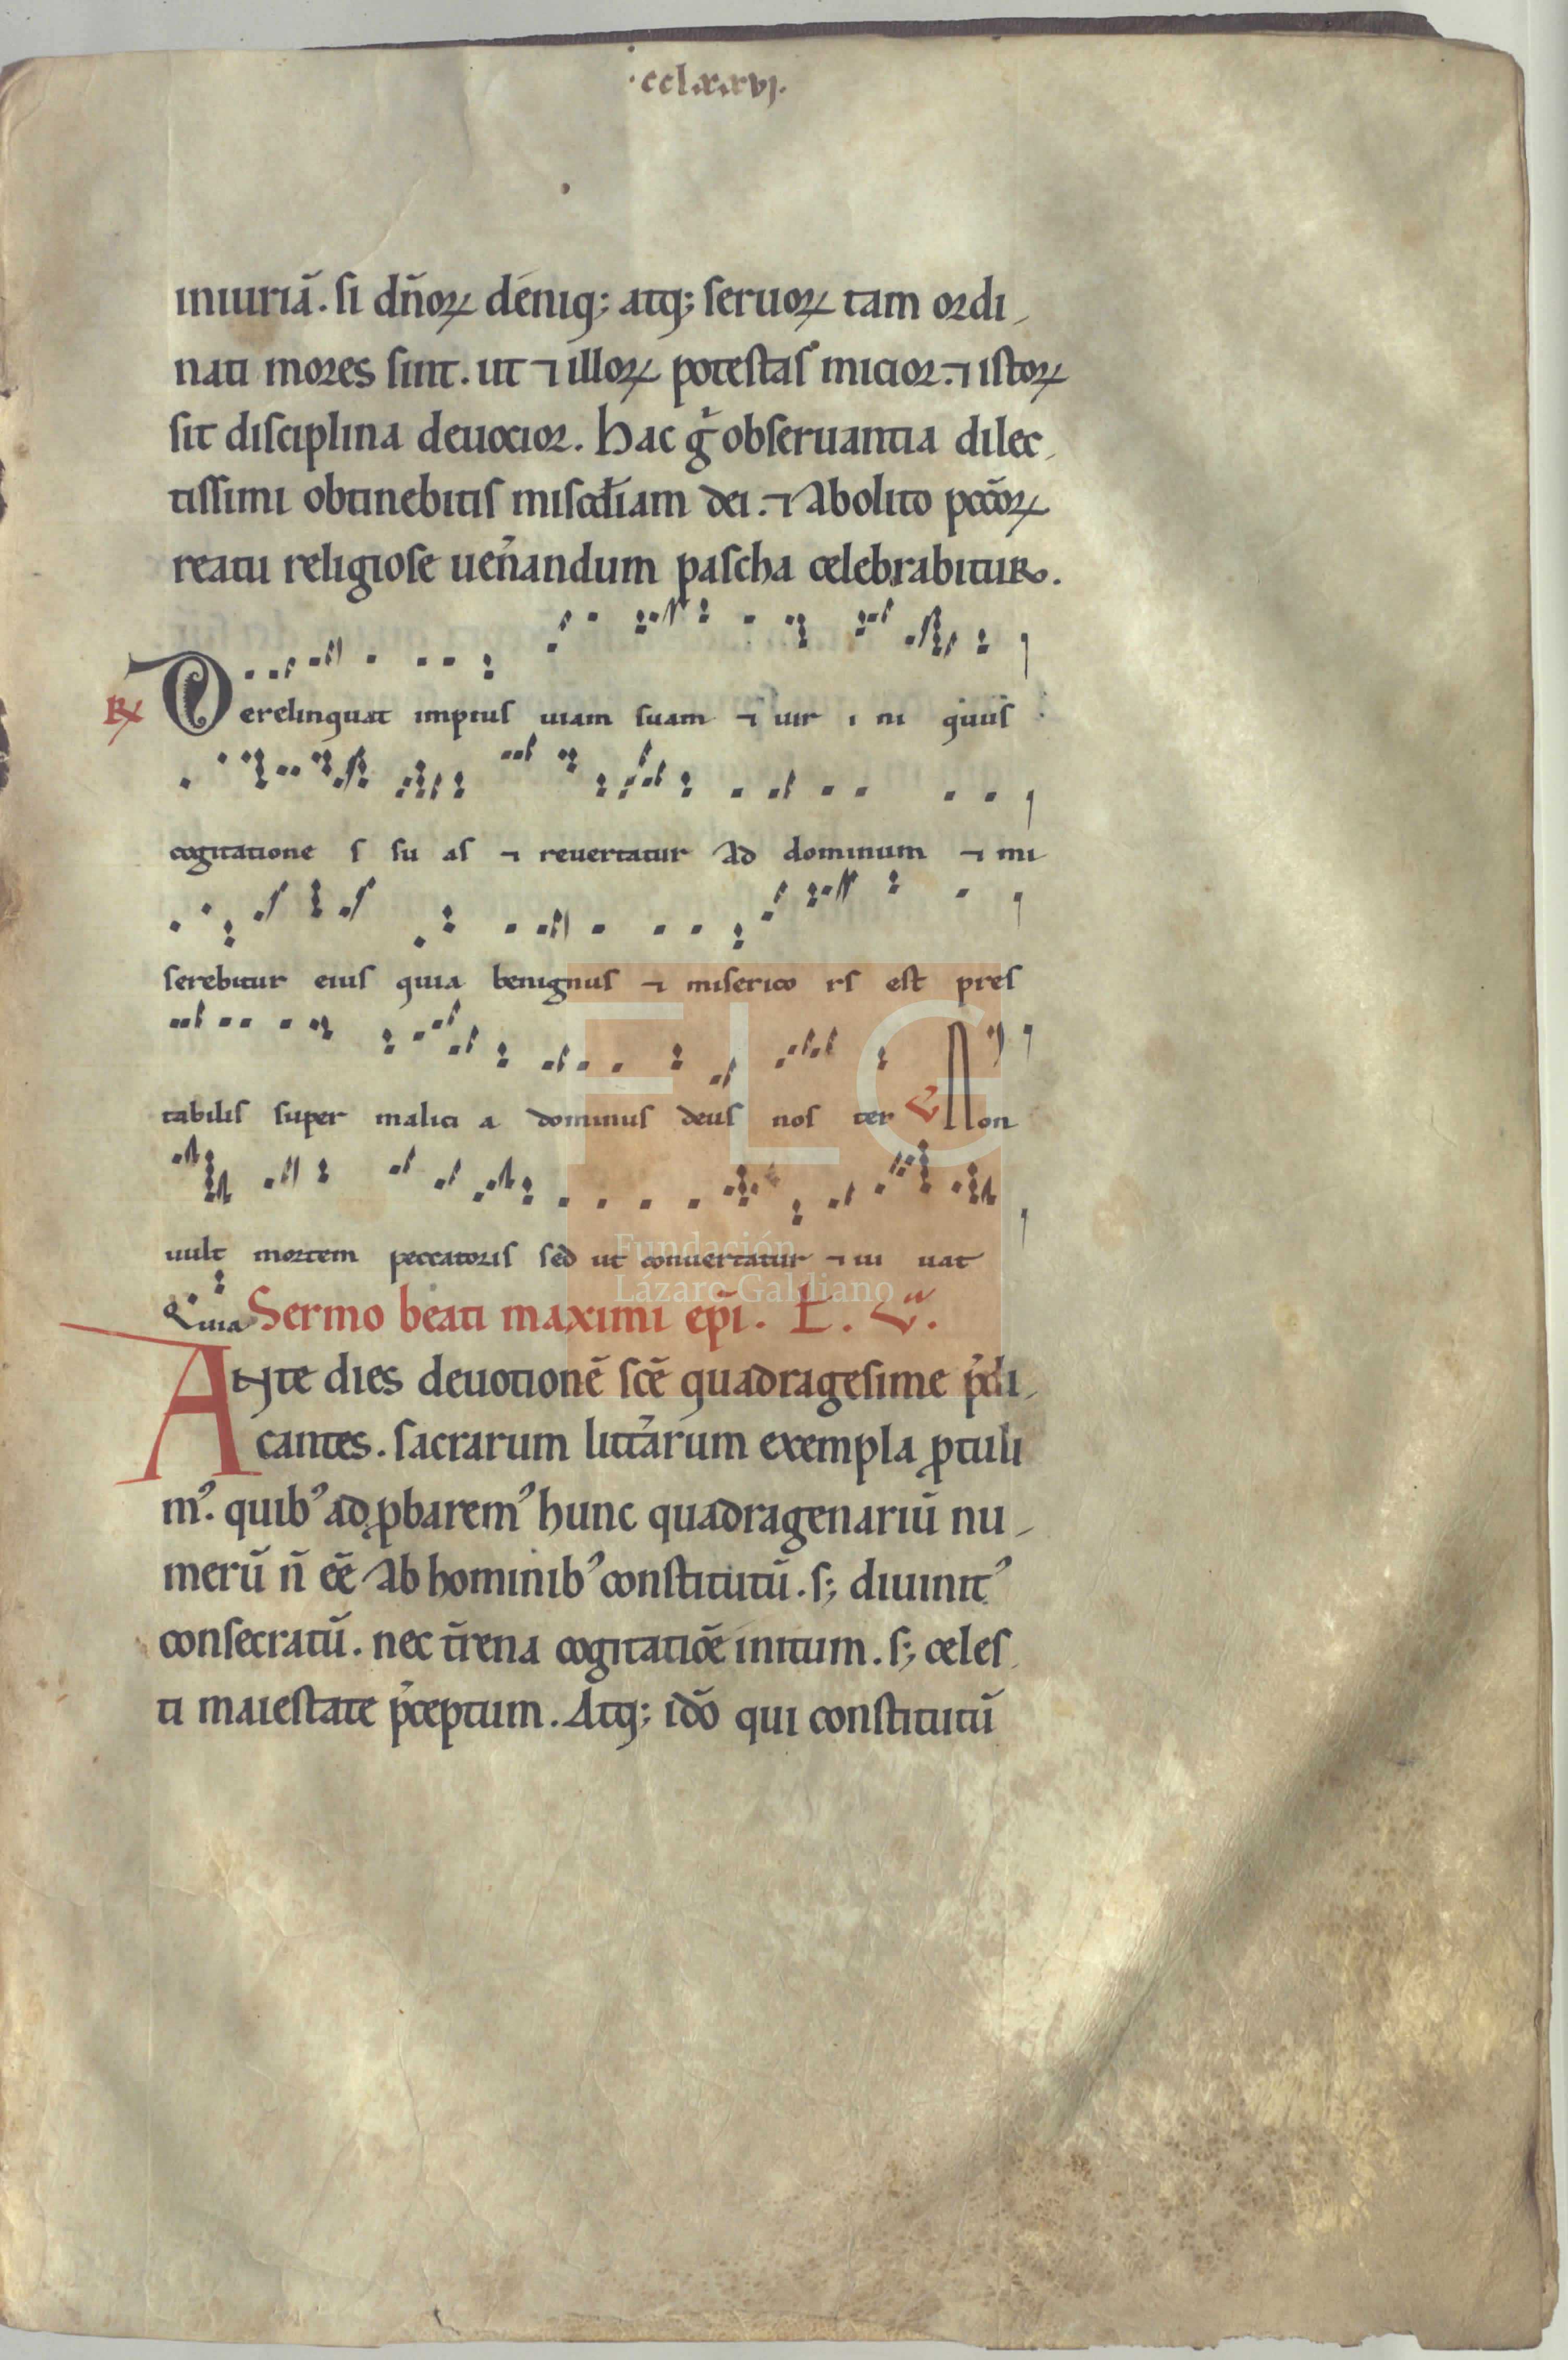 .cclxxvj.
iniuriã. si dn̄oꝝ déniq; atq; seruoꝝ tam ordi
nati mores sint. ut ⁊ illoꝝ potestas micior. ⁊ istoꝝ
sit disciplina deuocior. Hac g̃ obseruantia dilec
tissimi obtinebitis misc̄diam dei. ⁊ abolito pcc̄oꝝ
reatu religiose uen̄andum pascha celebrabitur.
℟ Derelinquat impius uiam suam ⁊ uir i ni quus
cogitatione s su as ⁊ reuertatur ad dominum ⁊ mi
serebitur eius quia benignus ⁊ miserico rs est pres
tabilis super malici a dominus deus nos ter Non
uult mortem peccatoris sed ut conuertatur ⁊ ui uat
Quia Sermo beati maximi ep̄i.
Ante dies deuotionē scē quadragesime p̄di
cantes. sacrarum litt̄arum exempla ꝓtuli
mꝰ. quibꝰ adꝓbaremꝰ hunc quadragenariū nu
merū n̄ eē ab hominibꝰ constitutū. s; diuinitꝰ
consecratū. nec t̄rena cogitatiōe initum. s; celes
ti maiestate p̄ceptum. Atq; idō qui constitutū
FLG
Fundación
Lázaro Galdiano